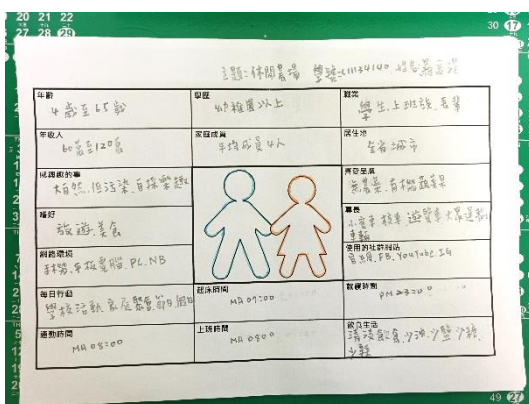 20 21 22
27 28 29
30 17
主題:休閒農場 學號:C11134140 姓名
年齡
4歲至65歲
學歷
幼稚園以上
職業
學生、上班族、長輩
年收入
60萬至120萬
家庭成員
平均成員4人
居住地
全省城市
感興趣的事
大自然、低污染、自採樂趣
喜愛品牌
無農藥、有機蔬菜
嗜好
旅遊、美食
專長
網路環境
手機、平板電腦、PC、NB
使用的社群網站
官網、FB、YouTube、IG
每日行動
學校活動、家庭聚會、節日、假日
起床時間
MA 07:00
就寢時間
PM 23:00
通勤時間
MA 08:00
上班時間
MA 0900
飲食生活
清淡飲食、少油、少鹽、少糖、
49 27